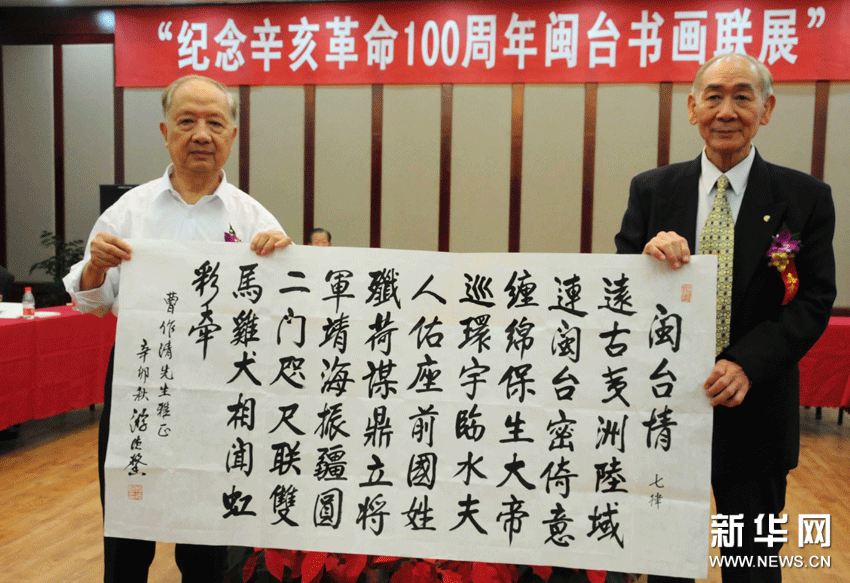 “纪念辛亥革命100周年闽台书画联展”
闽台情 七律
遠古夷洲陸域
連闽台密倚意
纏綿保生大帝
巡環宇臨水夫
人佑座前國姓
殲荷謀鼎立将
軍靖海振疆圓
二门咫尺联雙
馬雞犬相闻虹
彩牵
曹作清先生雅正
辛卯秋 游德馨
新华网
WWW.NEWS.CN